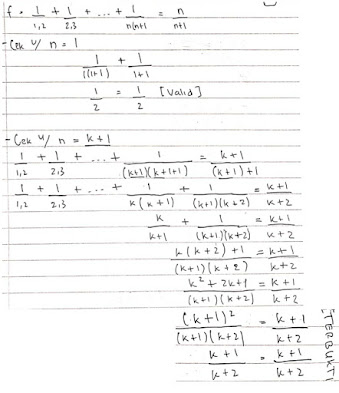 f = 1/1,2 + 1/2,3 + ... + 1/n(n+1 = n/n+1
- Cek u/ n = 1
1/1(1+1) + 1/1+1
1/2 = 1/2 [Valid]
- Cek u/ n = k+1
1/1,2 + 1/2,3 + ... + 1/(k+1)(k+1+1) = k+1/(k+1)+1
1/1,2 + 1/2,3 + ... + 1/k(k+1) + 1/(k+1)(k+2) = k+1/k+2
k/k+1 + 1/(k+1)(k+2) = k+1/k+2
k(k+2)+1/(k+1)(k+2) = k+1/k+2
k²+2k+1/(k+1)(k+2) = k+1/k+2
(k+1)²/(k+1)(k+2) = k+1/k+2
k+1/k+2 = k+1/k+2
[TERBUKTI